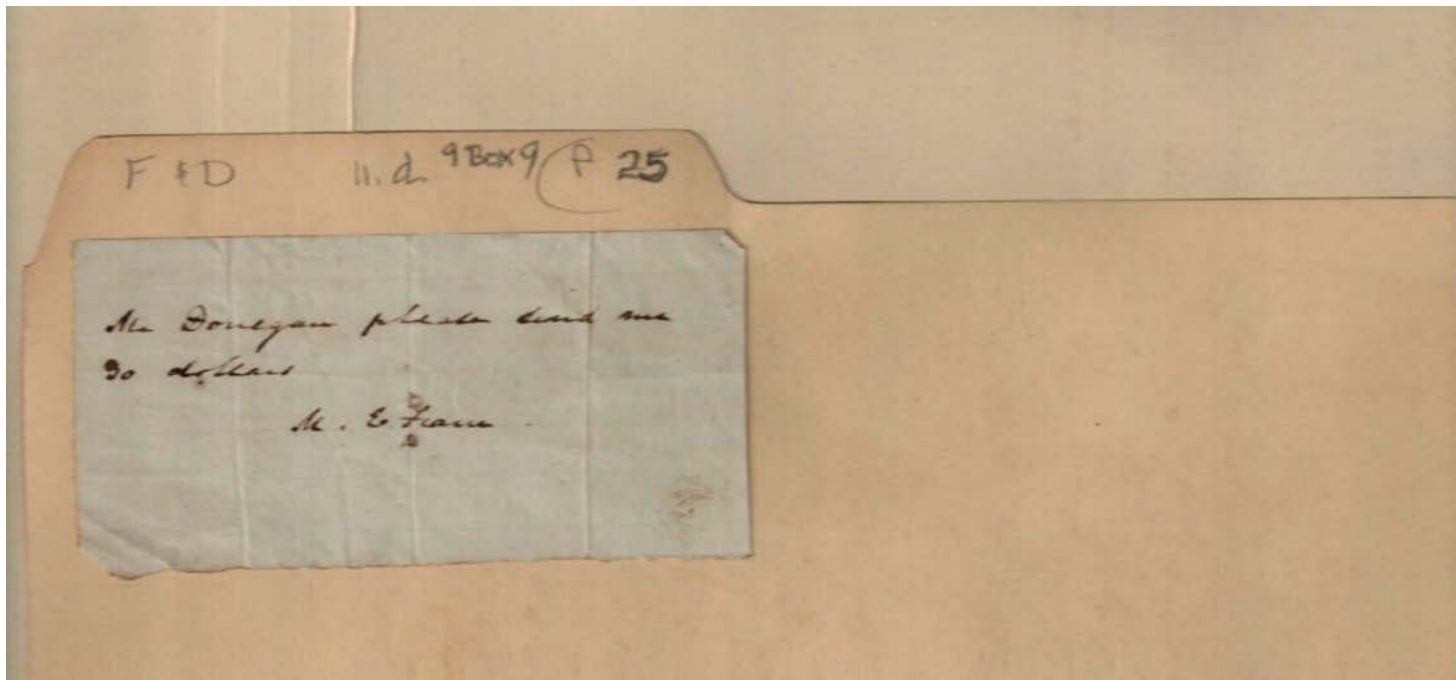 F & D n.d. 9 Box 9 (P 25
Mr Donegan please send me
30 dollars
M. E.